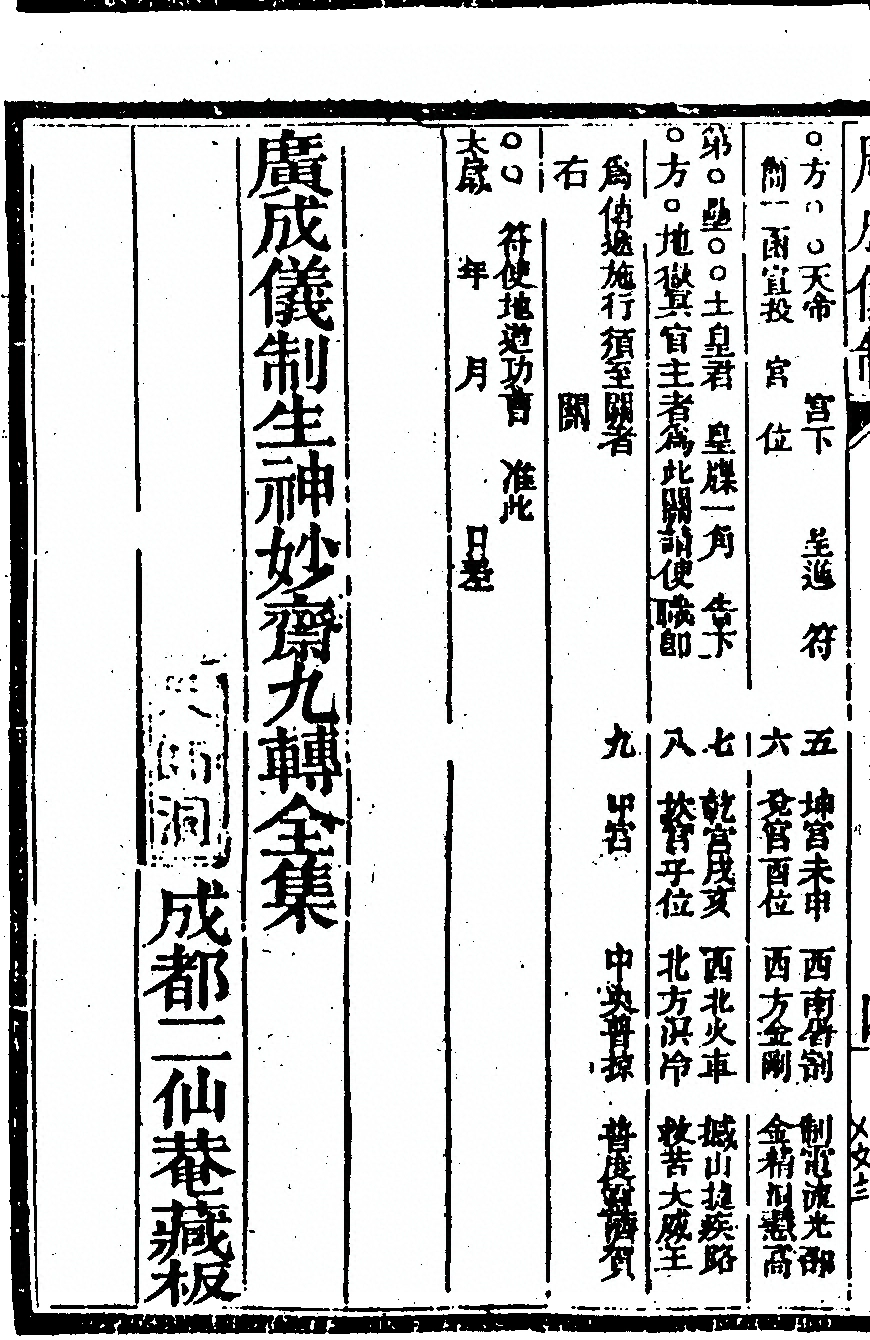 廣成儀制
○方○○天帝 宮下 呈進 符 五 坤宮未申 西南屠割 制電流光部
簡一函宣投 宮 位 六 兌宮酉位 西方金剛 金精高
第○壘○○土皇君 皇牒一角 告下 七 乾宮戌亥 西北火車 撼山捷疾路
○方○地獄冥官主者為此關請使職即 八 坎宮子位 北方溟冷 救苦大威王
為傳遞施行須至關者 九 中宮 中央普掠 普度賀
右 關
○○ 符使地道功曹 准此
太歲 年 月 日
廣成儀制生神妙齋九轉全集
洞
成都二仙菴藏板